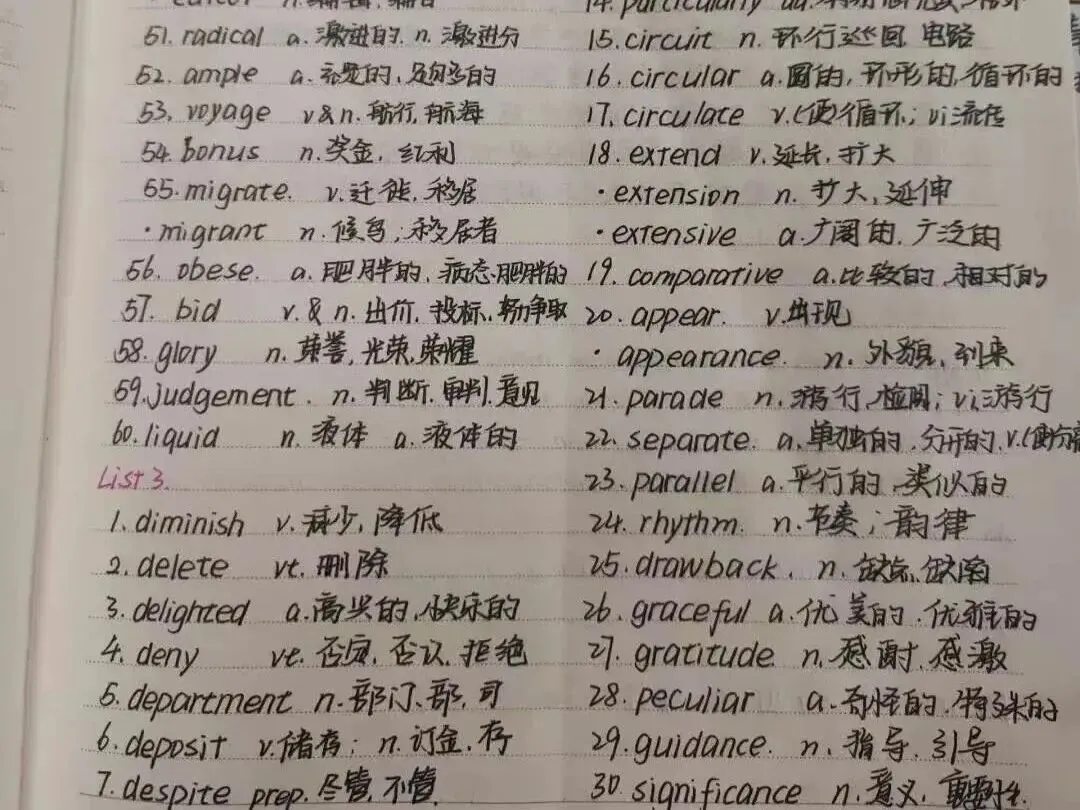 51. radical a. 激进的. n. 激进分
52. ample a. 充足的, 足够多的
53. voyage v&n. 航行, 航海
54. bonus n. 奖金, 红利
55. migrate. v. 迁徙, 移居
·migrant n. 候鸟; 移居者
56. obese. a. 肥胖的, 病态肥胖的
57. bid v. & n. 出价, 投标, 努力争取
58. glory n. 荣誉, 光荣, 荣耀
59. judgement. n. 判断. 审判. 意见
60. liquid n. 液体 a. 液体的
List 3.
1. diminish v. 减少, 降低
2. delete vt. 删除
3. delighted a. 高兴的, 快乐的
4. deny vt. 否定, 否认, 拒绝
5. department n. 部门、部, 司
6. deposit v. 储存; n. 订金, 存
7. despite prep. 尽管, 不管
14. particularly ad.
15. circuit n. 环行巡回, 电路
16. circular a. 圆的, 环形的, 循环的
17. circulate v. (使)循环; vi 流传
18. extend v. 延长, 扩大
·extension n. 扩大, 延伸
·extensive a. 广阔的, 广泛的
19. comparative a. 比较的, 相对的
20. appear. v. 出现
·appearance. n. 外貌, 到来
21. parade n. 游行, 检阅; vi. 游行
22. separate. a. 单独的, 分开的. v. (使)分离
23. parallel a. 平行的, 类似的
24. rhythm. n. 节奏; 韵律
25. drawback. n. 缺点, 缺陷
26. graceful a. 优美的, 优雅的
27. gratitude n. 感谢, 感激
28. peculiar a. 奇怪的, 特殊的
29. guidance. n. 指导, 引导
30. significance n. 意义, 重要性